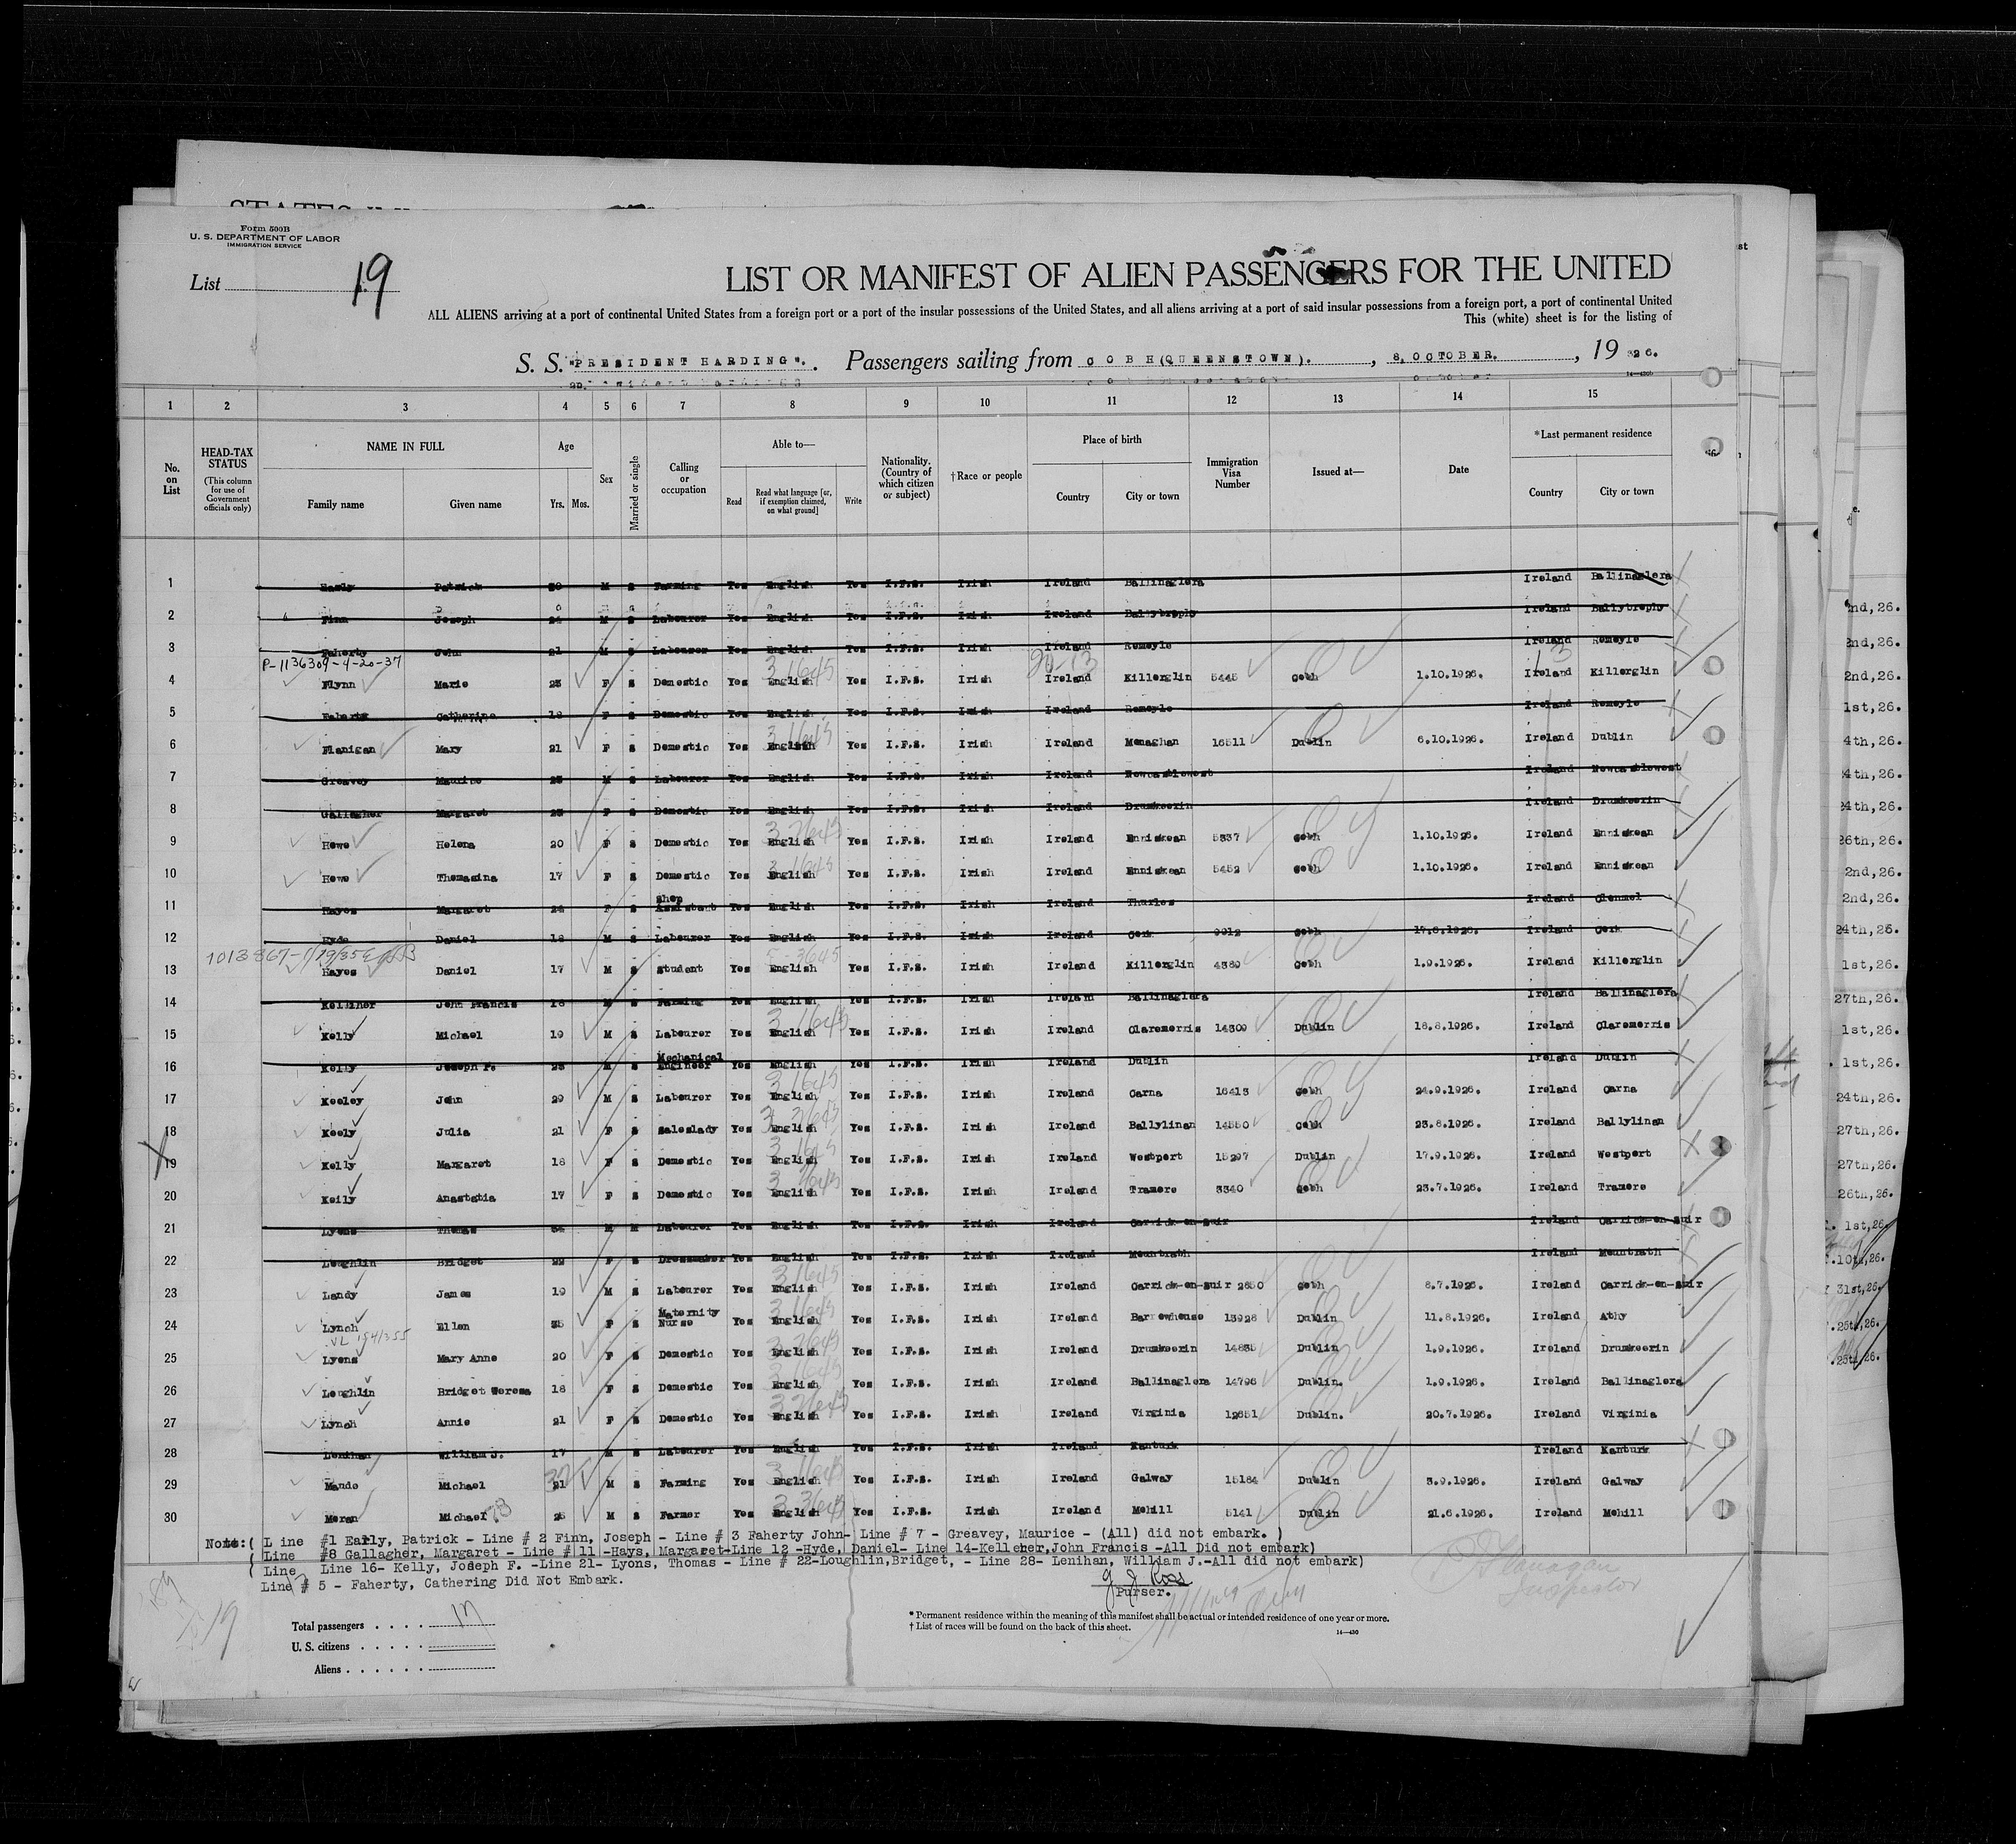 Form 500B
U. S. DEPARTMENT OF LABOR
IMMIGRATION SERVICE
List 19
LIST OR MANIFEST OF ALIEN PASSENGERS FOR THE UNITED
ALL ALIENS arriving at a port of continental United States from a foreign port or a port of the insular possessions of the United States, and all aliens arriving at a port of said insular possessions from a foreign port, a port of continental United
This (white) sheet is for the listing of
S. S. "PRESIDENT HARDING". Passengers sailing from COBH(QUEENSTOWN). , 8, OCTOBER. , 19 26.
1 2 3 4 5 6 7 8 9 10 11 12 13 14 15
No. on List
HEAD-TAX STATUS (This column for use of Government officials only)
NAME IN FULL Family name Given name
Age Yrs. Mos.
Sex
Married or single
Calling or occupation
Able to— Read Read what language [or, if exemption claimed, on what ground] Write
Nationality. (Country of which citizen or subject)
†Race or people
Place of birth Country City or town
Immigration Visa Number
Issued at—
Date
*Last permanent residence Country City or town
1 Early Patrick 30 M S Farming Yes English Yes I.F.S. Irish Ireland Ballinaglera Ireland Ballinaglera
2 Finn Joseph 24 M S Labourer Yes English Yes I.F.S. Irish Ireland Ballybrophy Ireland Ballybrophy
3 Faherty John 21 M S Labourer Yes English Yes I.F.S. Irish Ireland Remeyle Ireland Remeyle
P-1136309-4-20-37
4 Flynn Marie 23 F S Domestic Yes English Yes I.F.S. Irish Ireland Killorglin 5445 Cobh 1.10.1926. Ireland Killorglin
5 Faherty Catherine 18 F S Domestic Yes English Yes I.F.S. Irish Ireland Remeyle Ireland Remeyle
6 Flanigan Mary 21 F S Domestic Yes English Yes I.F.S. Irish Ireland Monaghan 16511 Dublin 6.10.1926. Ireland Dublin
7 Greavey Maurice 23 M S Labourer Yes English Yes I.F.S. Irish Ireland Newcastlewest Ireland Newcastlewest
8 Gallagher Margaret 23 F S Domestic Yes English Yes I.F.S. Irish Ireland Drumkeerin Ireland Drumkeerin
9 Howe Helena 20 F S Domestic Yes English Yes I.F.S. Irish Ireland Enniskean 5337 Cobh 1.10.1926. Ireland Enniskean
10 Howe Thomasina 17 F S Domestic Yes English Yes I.F.S. Irish Ireland Enniskean 5452 Cobh 1.10.1926. Ireland Enniskean
11 Hayes Margaret 24 F S Shop Assistant Yes English Yes I.F.S. Irish Ireland Thurles Ireland Clonmel
12 Hyde Daniel 18 M S Labourer Yes English Yes I.F.S. Irish Ireland Cork Cobh Ireland Cork
13 Hayes Daniel 17 M S Student Yes English Yes I.F.S. Irish Ireland Killorglin 4380 Cobh 1.9.1926. Ireland Killorglin
14 Kelleher John Francis 18 M S Farming Yes English Yes I.F.S. Irish Ireland Ballinaglera Ireland Ballinaglera
15 Kelly Michael 19 M S Labourer Yes English Yes I.F.S. Irish Ireland Claremorris 14309 Dublin 18.8.1926. Ireland Claremorris
16 Kelly Joseph F. 23 M S Mechanical Engineer Yes English Yes I.F.S. Irish Ireland Dublin Ireland Dublin
17 Keeley John 29 M S Labourer Yes English Yes I.F.S. Irish Ireland Carna 16413 Cobh 24.9.1926. Ireland Carna
18 Keely Julia 21 F S Saleslady Yes English Yes I.F.S. Irish Ireland Ballylinan 14550 Cobh 23.8.1926. Ireland Ballylinan
19 Kelly Margaret 18 F S Domestic Yes English Yes I.F.S. Irish Ireland Westport 15297 Dublin 17.9.1926. Ireland Westport
20 Keily Anastatia 17 F S Domestic Yes English Yes I.F.S. Irish Ireland Tramore 3340 Cobh 23.7.1926. Ireland Tramore
21 Lyons Thomas 34 M M Labourer Yes English Yes I.F.S. Irish Ireland Carrick-on-Suir Ireland Carrick-on-Suir
22 Loughlin Bridget 22 F S Dressmaker Yes English Yes I.F.S. Irish Ireland Mountrath Ireland Mountrath
23 Landy James 19 M S Labourer Yes English Yes I.F.S. Irish Ireland Carrick-on-Suir 2850 Cobh 8.7.1926. Ireland Carrick-on-Suir
24 Lynch Ellen 35 F S Maternity Nurse Yes English Yes I.F.S. Irish Ireland Barrowhouse 13928 Dublin 11.8.1926. Ireland Athy
25 Lyons Mary Anne 20 F S Domestic Yes English Yes I.F.S. Irish Ireland Drumkeerin 14835 Dublin 1.9.1926. Ireland Drumkeerin
26 Loughlin Bridget Teresa 18 F S Domestic Yes English Yes I.F.S. Irish Ireland Ballinaglera 14796 Dublin. 1.9.1926. Ireland Ballinaglera
27 Lynch Annie 21 F S Domestic Yes English Yes I.F.S. Irish Ireland Virginia 12651 Dublin. 20.7.1926. Ireland Virginia
28 Lenihan William J. 17 M S Labourer Yes English Yes I.F.S. Irish Ireland Kanturk Ireland Kanturk
29 Mande Michael 21 M S Farming Yes English Yes I.F.S. Irish Ireland Galway 15184 Dublin 3.9.1926. Ireland Galway
30 Moran Michael 25 M S Farmer Yes English Yes I.F.S. Irish Ireland Mohill 5141 Dublin 21.6.1926. Ireland Mohill
Note:( L ine #1 Early, Patrick - Line # 2 Finn, Joseph - Line # 3 Faherty John- Line # 7 - Greavey, Maurice - (All) did not embark. )
( Line #8 Gallagher, Margaret - Line # 11 -Hays, Margaret-Line 12 -Hyde, Daniel- Line 14-Kelleher,John Francis -All Did not embark)
( Line Line 16- Kelly, Joseph F. -Line 21- Lyons, Thomas - Line # 22-Loughlin,Bridget, - Line 28- Lenihan, William J.-All did not embark)
Line # 5 - Faherty, Cathering Did Not Embark.
G J Ross
Purser.
Flanagan
Inspector
Total passengers . . . . 17
U. S. citizens . . . . .
Aliens . . . . . .
* Permanent residence within the meaning of this manifest shall be actual or intended residence of one year or more.
† List of races will be found on the back of this sheet.
14—430